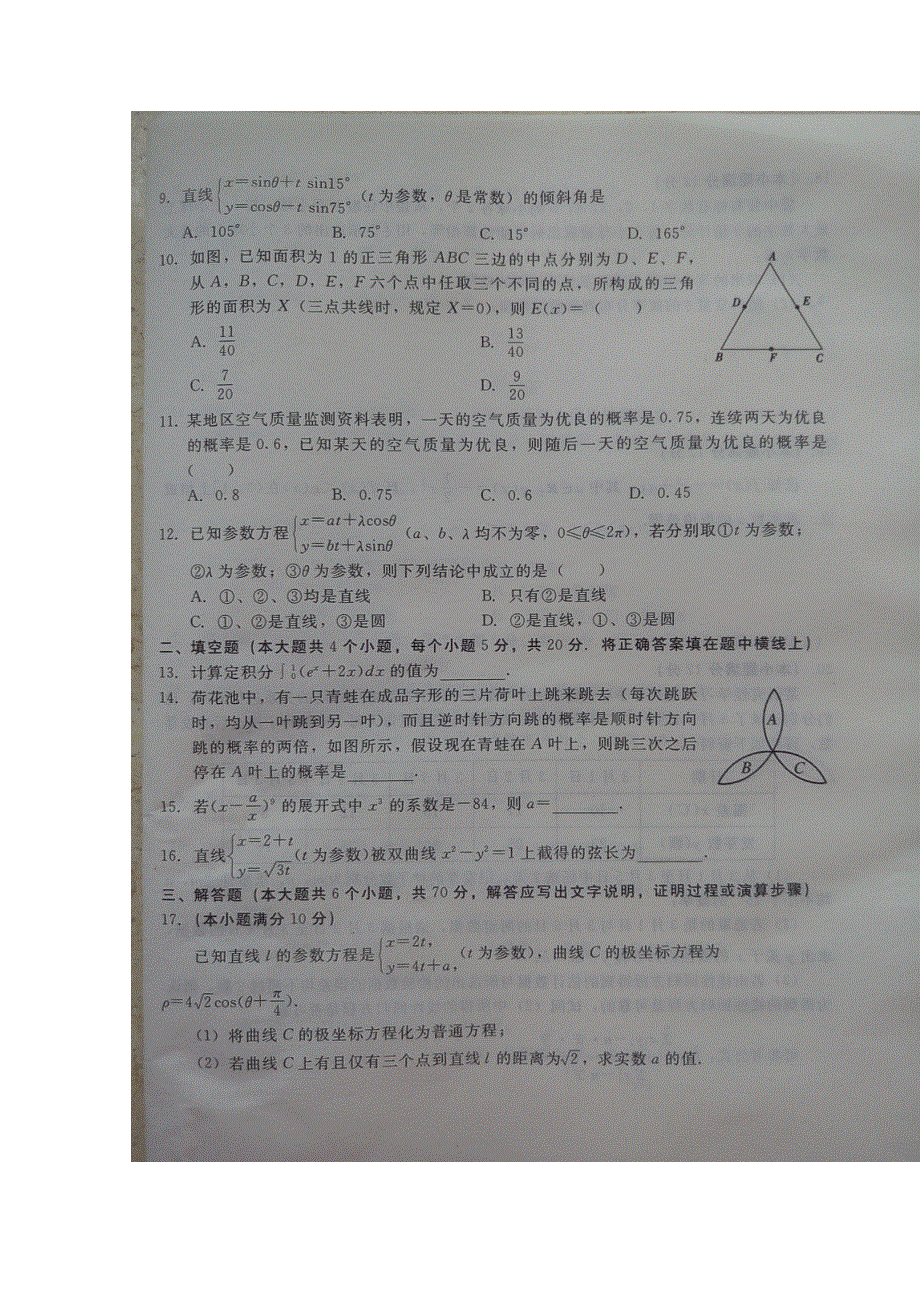 9. 直线{x=sinθ+t sin15° y=cosθ-t sin75° (t 为参数，θ 是常数) 的倾斜角是
A. 105° B. 75° C. 15° D. 165°
10. 如图，已知面积为 1 的正三角形 ABC 三边的中点分别为 D、E、F，
从 A，B，C，D，E，F 六个点中任取三个不同的点，所构成的三角
形的面积为 X (三点共线时，规定 X=0)，则 E(x)=（ ）
A. 11/40 B. 13/40
C. 7/20 D. 9/20
A
D E
B F C
11. 某地区空气质量监测资料表明，一天的空气质量为优良的概率是 0.75，连续两天为优良
的概率是 0.6，已知某天的空气质量为优良，则随后一天的空气质量为优良的概率是
（ ）
A. 0.8 B. 0.75 C. 0.6 D. 0.45
12. 已知参数方程{x=at+λcosθ y=bt+λsinθ (a、b、λ 均不为零，0≤θ≤2π)，若分别取①t 为参数；
②λ 为参数；③θ 为参数，则下列结论中成立的是（ ）
A. ①、②、③均是直线 B. 只有②是直线
C. ①、②是直线，③是圆 D. ②是直线，①、③是圆
二、填空题 (本大题共 4 个小题，每个小题 5 分，共 20 分．将正确答案填在题中横线上)
13. 计算定积分 ∫₀¹(eˣ+2x)dx 的值为________.
14. 荷花池中，有一只青蛙在成品字形的三片荷叶上跳来跳去 (每次跳跃
时，均从一叶跳到另一叶)，而且逆时针方向跳的概率是顺时针方向
跳的概率的两倍，如图所示，假设现在青蛙在 A 叶上，则跳三次之后
停在 A 叶上的概率是________.
A
B C
15. 若(x-a/x)⁹ 的展开式中 x³ 的系数是-84，则 a=________.
16. 直线{x=2+t y=√3t (t 为参数)被双曲线 x²-y²=1 上截得的弦长为________.
三、解答题 (本大题共 6 个小题，共 70 分，解答应写出文字说明，证明过程或演算步骤)
17. (本小题满分 10 分)
已知直线 l 的参数方程是{x=2t, y=4t+a, (t 为参数)，曲线 C 的极坐标方程为
ρ=4√2cos(θ+π/4).
(1) 将曲线 C 的极坐标方程化为普通方程；
(2) 若曲线 C 上有且仅有三个点到直线 l 的距离为√2，求实数 a 的值.